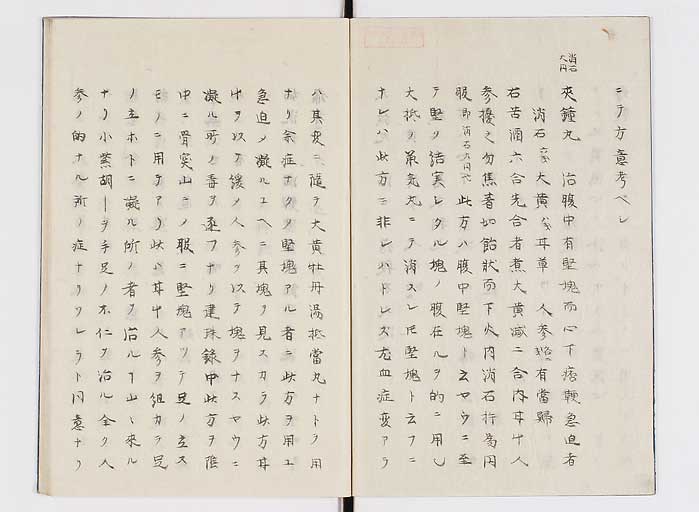 ニテ方意考ベシ
消石
大円
夾鐘丸 治腹中有堅塊而心下痞鞕急迫者
消石 大黄 耳草 人参 有當歸
右苦酒六合先合者煮大黄減二合内耳草人
参攪之勿焦著如飴状而下火内消石搗為円
服 即消石大円 此方ハ腹中堅塊ト云ヤウニ至
テ堅ク結実シタル塊ノ腹在ルヲ的ニ用ヒ
大抵ノ承気丸ニテ消スレ𪜈堅塊ト云フニ
ナレハ此方ニ非レハトレズ尤血症変アラ
ハ其変ニ隨テ大黄牡丹湯抵當丸ナトヲ用
ナリ余症ナク〆堅塊アル者ニ此方ヲ用ユ
急迫〆凝ルユヘニ其塊ヲ見スカラ此方耳
中ヲ以テ緩メ人参ヲ以テ塊ヲナスヤウニ
凝ル所ノ毒ヲ逐フナリ建珠録中此方ヲ陰
中ニ骨突出ニ〆眼ニ堅塊アリテ足ノ立ス
モノニ用テアリ此ハ耳中人参ヲ組カラ足
ノ立ホトニ凝ル所ノ者ヲ治ル
ナリ小柴胡ーヲ手足ノ 仁ヲ治ル全ク人
参ノ的ナル所ノ症ナリクレラト同意ナリ